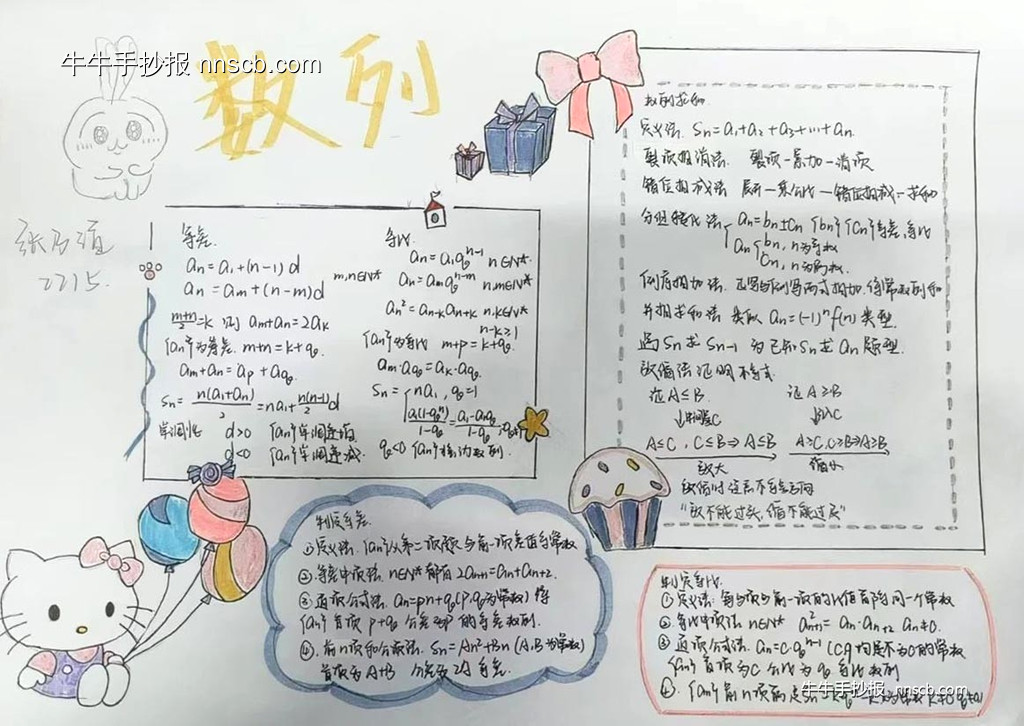 牛牛手抄报 nnscb.com
数列
2215
等差
aₙ=a₁+(n-1)d
aₙ=aₘ+(n-m)d
m,n∈N*
(m+n)/2=k 则 aₘ+aₙ=2aₖ
{aₙ}为等差. m+n=k+q
aₘ+aₙ=aₚ+a_q
Sₙ=n(a₁+aₙ)/2=na₁+n(n-1)/2 d
单调性 d>0 {aₙ}单调递增
d<0 {aₙ}单调递减
等比
aₙ=a₁qⁿ⁻¹ n∈N*
aₙ=aₘqⁿ⁻ᵐ n,m∈N*
aₙ²=aₙ₋ₖaₙ₊ₖ n,k∈N*
n-k≥1
{aₙ}为等比 m+p=k+q
aₘ·a_q=aₖ·a_q
Sₙ= na₁, q=1
a₁(1-qⁿ)/1-q=a₁-aₙq/1-q
q<0 {aₙ}摆动数列
数列求和
定义法. Sₙ=a₁+a₂+a₃+…+aₙ
裂项相消法. 裂项-累加-消项
错位相减法 展开-乘公比-错位相减-求和
分组转化法 aₙ=bₙ±cₙ {bₙ}{cₙ}等差、等比
aₙ bₙ, n为奇数
cₙ, n为偶数.
倒序相加法. 正写与倒写两式相加, 得常数列和
并相求和法 类似 aₙ=(-1)ⁿf(n) 类型.
遇Sₙ求Sₙ₋₁ 为已知Sₙ求aₙ题型.
放缩法证明不等式.
证A≤B. 证A≥B
↓中间量C ↓引入C
A≤C, C≤B⇒A≤B A≥C, C≥B⇒A≥B
放大 缩小
放缩时注意不等号方向
"放不能过头, 缩不能过尾"
判定等差.
①定义法. {aₙ}从第二项起与前一项差值为常数
②等差中项法. n∈N*都有2aₙ₊₁=aₙ+aₙ₊₂.
③通项公式法. aₙ=pn+q(p,q为常数) 得
{aₙ}首项p+q 公差为p的等差数列.
④. 前n项和公式法. Sₙ=An²+Bn (A,B为常数)
首项为A+B 公差为2A等差.
判定等比.
①定义法. 每项与前一项的比值都等同一个常数
②等比中项法 n∈N* a²ₙ₊₁=aₙ·aₙ₊₂ aₙ≠0.
③通项公式法. aₙ=c·qⁿ⁻¹ (cq均是不为0的常数
{aₙ}首项为c公比为q等比数列
④. {aₙ}前n项和是Sₙ
牛牛手抄报 nnscb.com